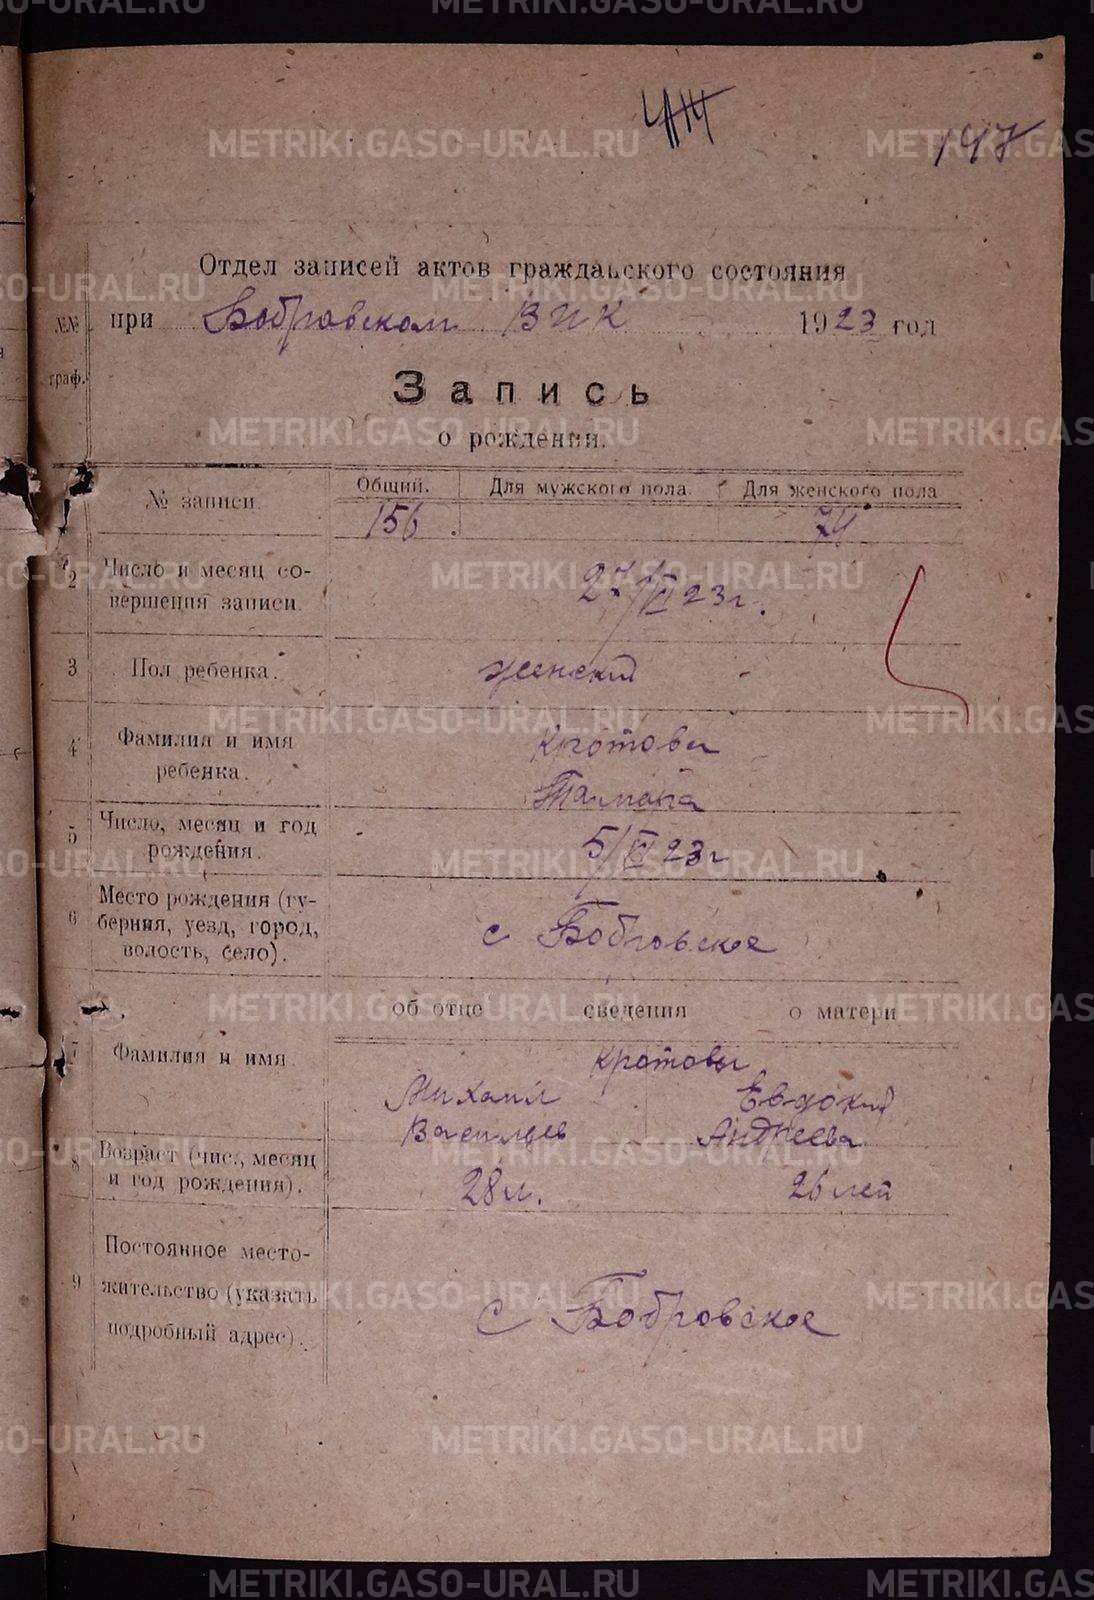 147
Отдел записей актов гражданского состояния
при Бобровском ВИК 1923 год
№№ граф.
Запись
о рождении.
№ записи. Общий. Для мужского пола. Для женского пола
156. 74
2 Число и месяц со-
вершения записи. 27/VI 23 г.
3 Пол ребенка. женский
4 Фамилия и имя Кротовы
ребенка. Тамара
5 Число, месяц и год
рождения. 5/VI 23 г
6 Место рождения (гу-
берния, уезд, город, с Бобровское
волость, село).
об отце сведения о матери
7 Фамилия и имя. Кротовы
Михаил Евдокия
Васильев Андреева
8 Возраст (чис., месяц
и год рождения). 28 л. 26 лет
Постоянное место-
9 жительство (указать с Бобровское
подробный адрес).
METRIKI.GASO-URAL.RU